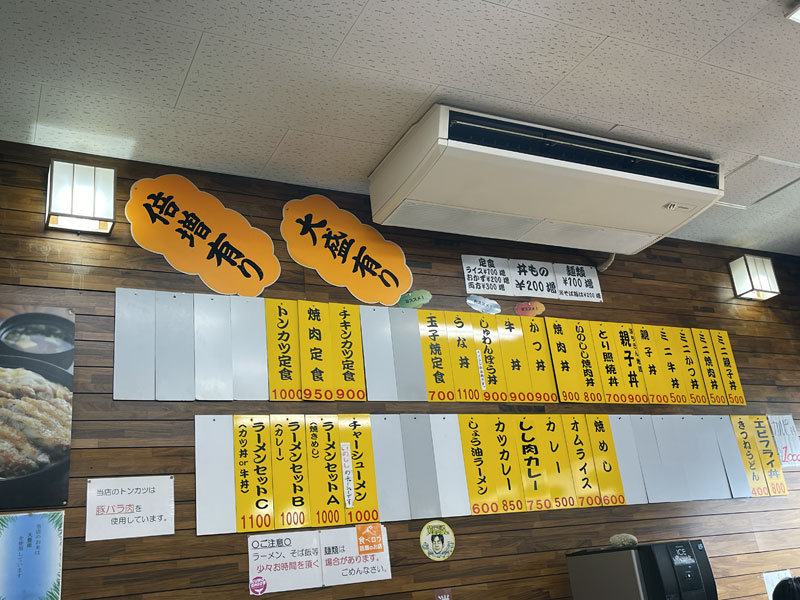 倍増有り
大盛有り
定食
ライス¥100増
おかず¥200増
両方¥300増
丼もの
¥200増
麺類
¥100増
トンカツ定食
1000
焼肉定食
950
チキンカツ定食
900
玉子焼定食
700
うな丼
1100
しゅわんぼう丼
900
牛丼
900
かつ丼
900
焼肉丼
900
いのしし焼肉丼
800
とり照焼丼
700
親子丼
900
親子丼
700
ミニ牛丼
500
ミニかつ丼
500
ミニ焼肉丼
500
ミニ親子丼
500
ラーメンセットC
(カツ丼or牛丼)
1100
ラーメンセットB
(カレー)
1000
ラーメンセットA
(焼きめし)
1000
チャーシューメン
1000
しょう油ラーメン
600
カツカレー
850
しし肉カレー
750
カレー
500
オムライス
700
焼めし
600
きつねうどん
400
エビフライ丼
800
当店のトンカツは
豚バラ肉を
使用しています。
〇ご注意〇
ラーメン、そば飯等 麺類は
少々お時間を頂く場合があります。
ごめんなさい。
食べログ
話題のお店
ICE